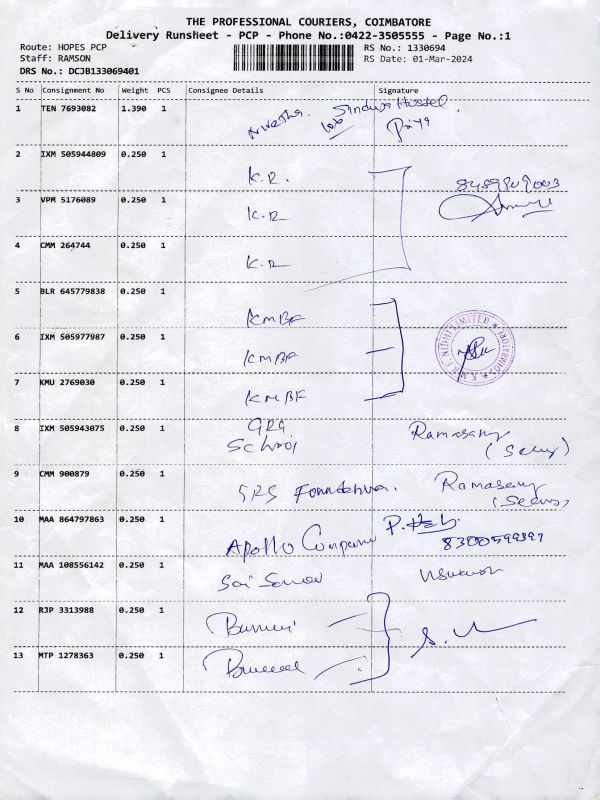 THE PROFESSIONAL COURIERS, COIMBATORE
Delivery Runsheet - PCP - Phone No.:0422-3505555 - Page No.:1
Route: HOPES PCP RS No.: 1330694
Staff: RAMSON RS Date: 01-Mar-2024
DRS No.: DCJB133069401
S No Consignment No Weight PCS Consignee Details Signature
1 TEN 7693082 1.390 1 Hostel Priya
2 IXM 505944809 0.250 1 K.R.
3 VPM 5176089 0.250 1 K.R
4 CMM 264744 0.250 1 K.R
5 BLR 645779838 0.250 1 KMBF
6 IXM 505977987 0.250 1 KMBF
7 KMU 2769030 0.250 1 KMBF
8 IXM 505943075 0.250 1 GRG School Ramasamy
9 CMM 900879 0.250 1 SRS Foundation. Ramasamy
10 MAA 864797863 0.250 1 Apollo Company
11 MAA 108556142 0.250 1 Sai
12 RJP 3313988 0.250 1
13 MTP 1278363 0.250 1